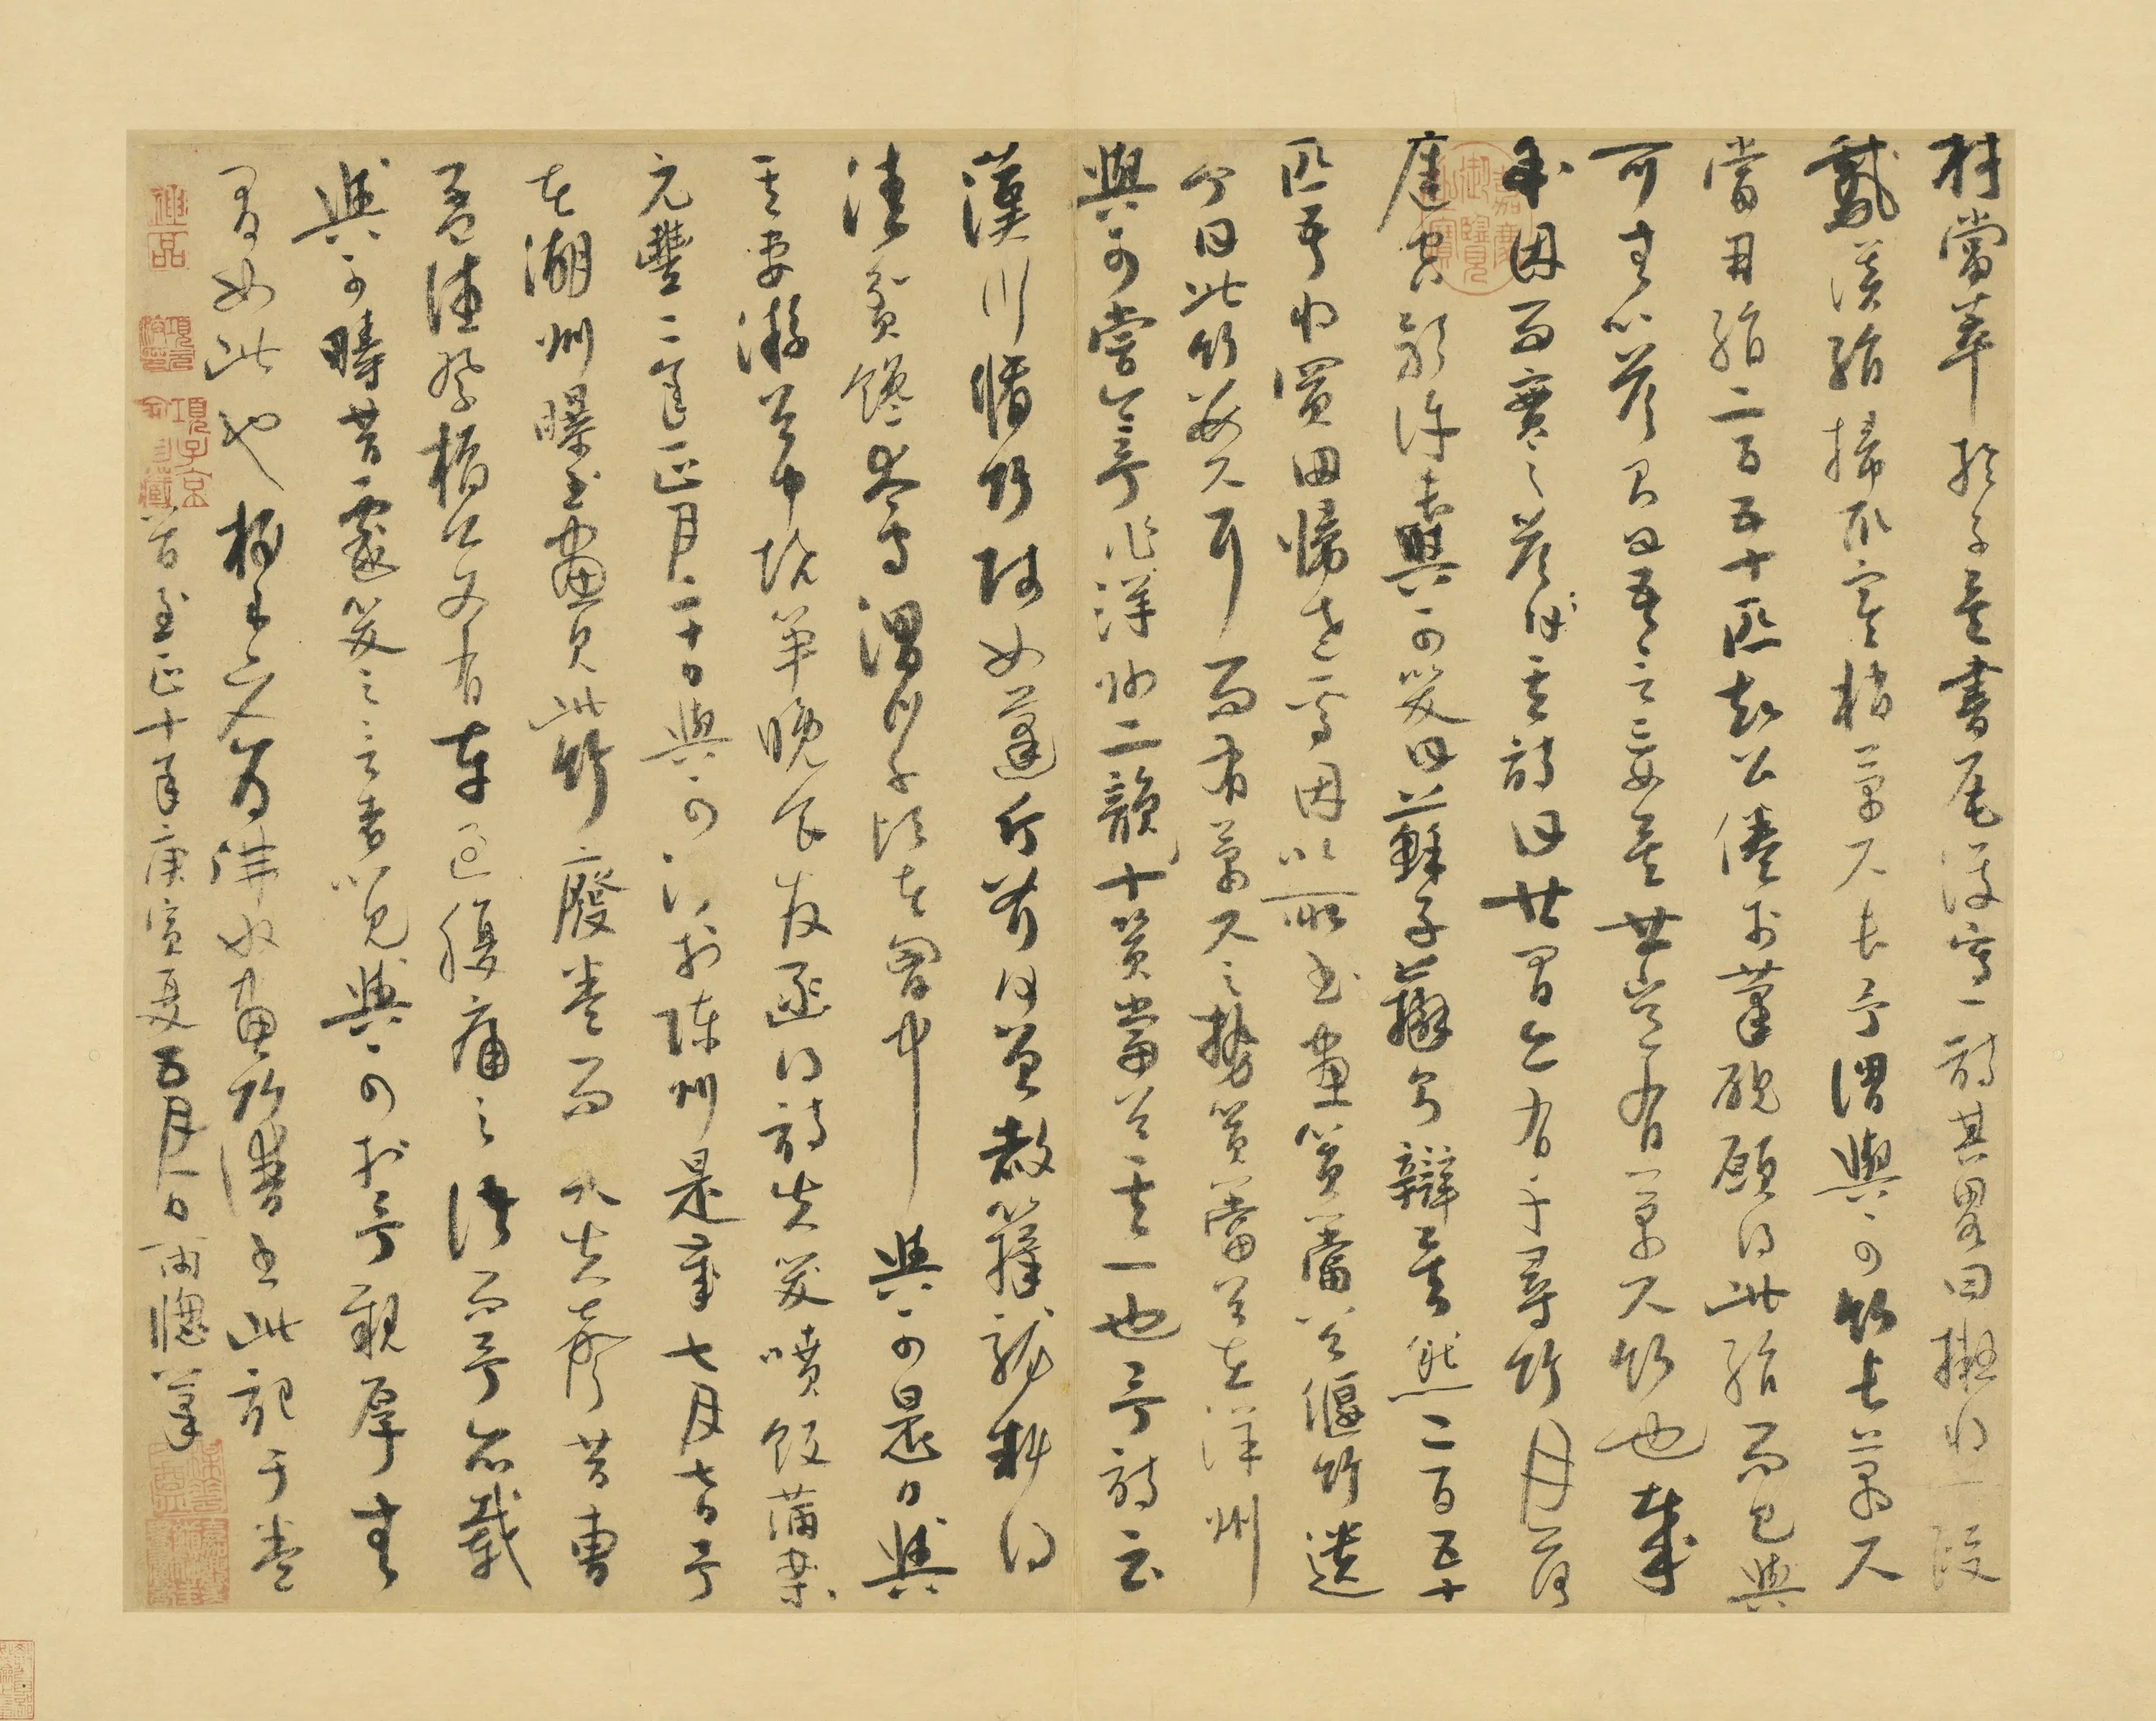 材當萃於子矣書尾復寫一詩其畧曰擬將一段
鵞溪絹掃取寒梢萬尺長予謂與可竹長萬尺
當用絹二百五十匹知公倦於筆硯願得此絹而已與
可無以答則曰吾言妄矣世豈有萬尺竹也哉
余因而實之答其詩曰世間亦有千尋竹月落
庭空影許長與可笑曰蘇子辯則辯矣然二百五十
匹吾將買田歸老焉因以所書畫篔簹谷偃竹遺
余曰此竹數尺耳而有萬尺之勢篔簹谷在洋州
與可嘗令予作洋州二韻十篔簹谷其一也予詩云
漢川脩竹賤如蓬斤斧何曾赦籜龍料得
清貧饞太守渭川千畝在胷中與可是日與
其妻游谷中燒筍晚食發函得詩失笑噴飯滿案
元豐二年正月二十日與可沒於陳州是歲七月七日予
在湖州曝書畫見此竹廢卷而哭失聲昔曹
孟德祭橋公文有車過腹痛之語而予亦載
與可疇昔戲笑之言者以見與可於予親厚無
間如此也梅老又為佛奴畫竹譜書此記于卷
首至正十年庚寅夏五月一日雨牕筆
嘉慶御覽之寶
項子京家珍藏